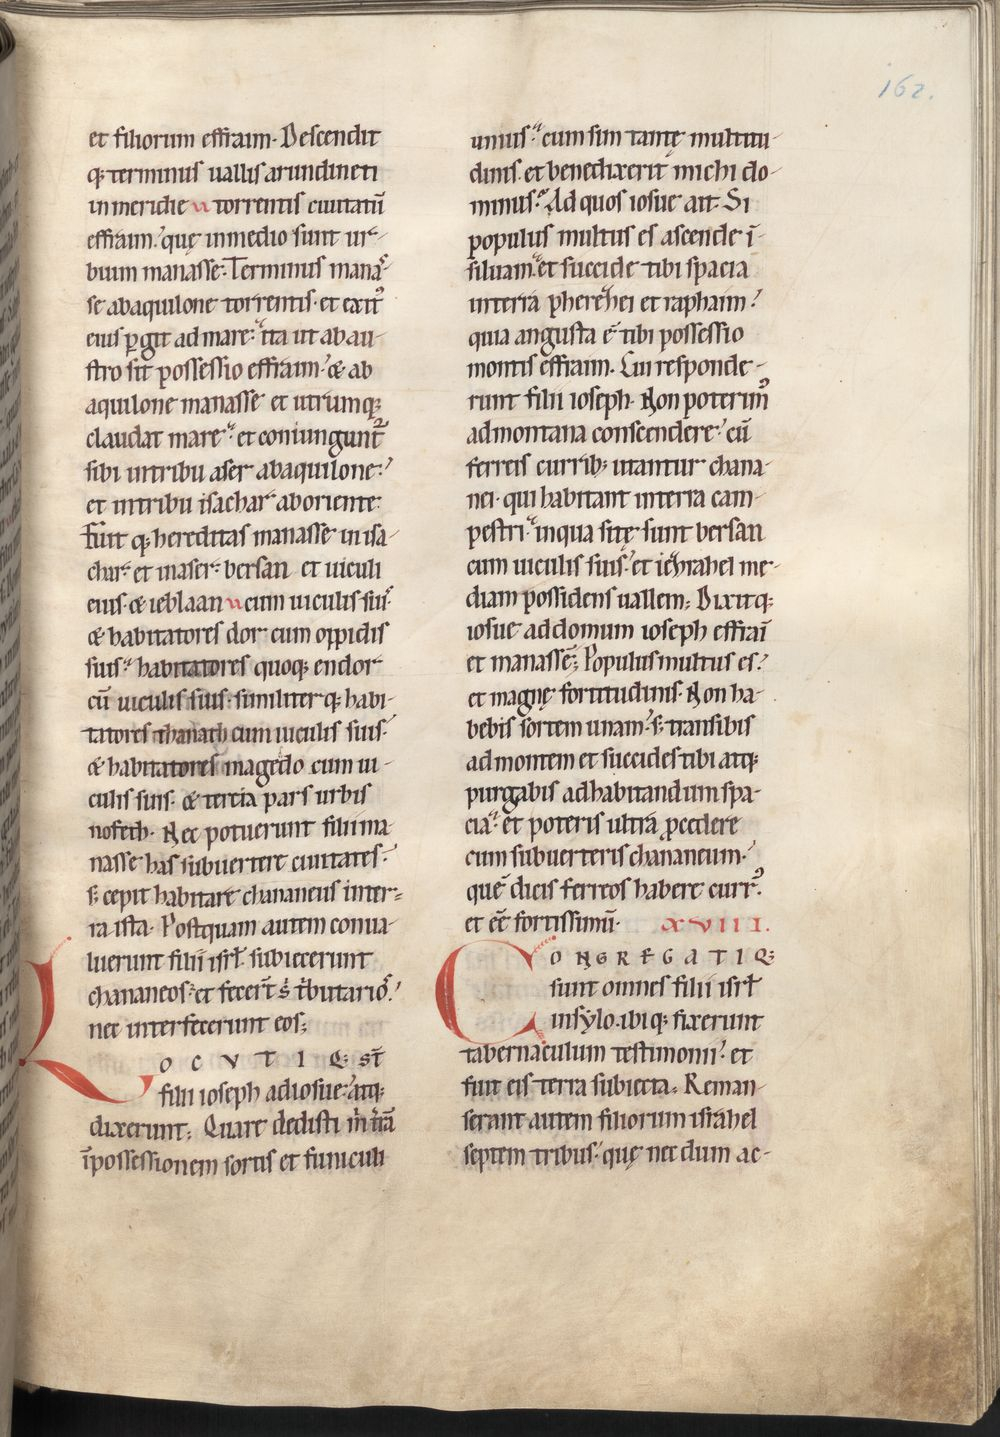 162.
et filiorum effraim. Descendit
q; terminus uallis arundineti
in meridie torrentis ciuitatū
effraim. quę in medio sunt ur-
bium manasse. Terminus manas-
se ab aquilone torrentis. et exit᷒
eius ꝑgit ad mare. ita ut ab au-
stro sit possessio effraim. & ab
aquilone manasse et utrumq;
claudat mare. et coniungunt᷒
sibi in tribu aser ab aquilone.
et in tribu isachar ab oriente.
Fuit q; hereditas manasse in isa-
char. et in aser. bersan et uiculi
eius. & ieblaan cum uiculis suis.
& habitatores dor cum oppidis
suis. habitatores quoq; endor
cū uiculis suis. similiter q; habi-
tatores thanach cum uiculis suis.
& habitatores magedo cum ui-
culis suis. & tercia pars urbis
nofeth. Nec potuerunt filii ma-
nasse has subuertere ciuitates.
s; cepit habitare chananeus in ter-
ra ista. Postquam autem conua-
luerunt filii isrł. subiecerunt
chananeos. et fecert̄ s̄ t̄butarios.
nec interfecerunt eos;
LOCVTIQ; st̄
filii ioseph ad iosue. atq;
dixerunt; Quare dedisti m̄ t̄rā
ī possessionem sortis et funiculi
unius. cum sim tantę multitu-
dinis. et benedixerit michi do-
minus. Ad quos iosue ait. Si
populus multus es ascende ī
siluam. et succide tibi spacia
in terra pherezei et raphaim.
quia angusta ē tibi possessio
montis effraim. Cui responde-
runt filii ioseph. Non poterim᷒
ad montana conscendere. cū
ferreis currib; utantur chana-
nei. qui habitant in terra cam-
pestri. in qua sitę sunt bersan
cum uiculis suis. et iezrahel me-
diam possidens uallem; Dixitq;
iosue ad domum ioseph effraī
et manasse; Populus multus es.
et magnę fortitudinis. Non ha-
bebis sortem unam. s; transibis
ad montem et succides tibi atq;
purgabis ad habitandum spa-
cia. et poteris ultra ꝓcedere
cum subuerteris chananeum.
quē dicis ferreos habere curr᷒.
et eē fortissimū. XVIII.
CONGREGATIQ;
sunt omnes filii isrł
in sylo. ibi q; fixerunt
tabernaculum testimonii. et
fuit eis terra subiecta. Reman-
serant autem filiorum israhel
septem tribus. quę nec dum ac-